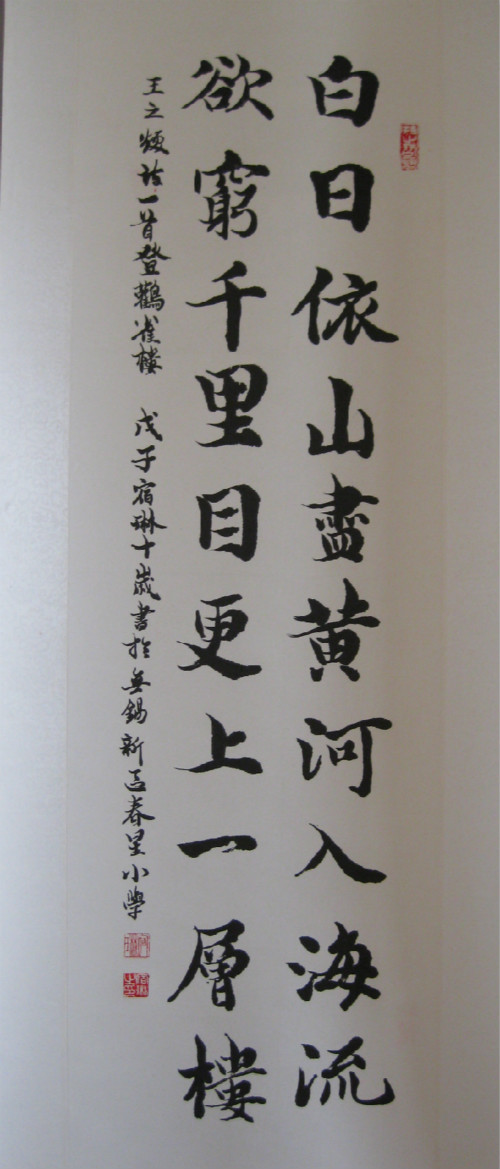 白日依山盡黄河入海流
欲窮千里目更上一層樓
王之渙詩一首登鸛雀樓 戊子宿琳十歲書於無錫新区春星小學